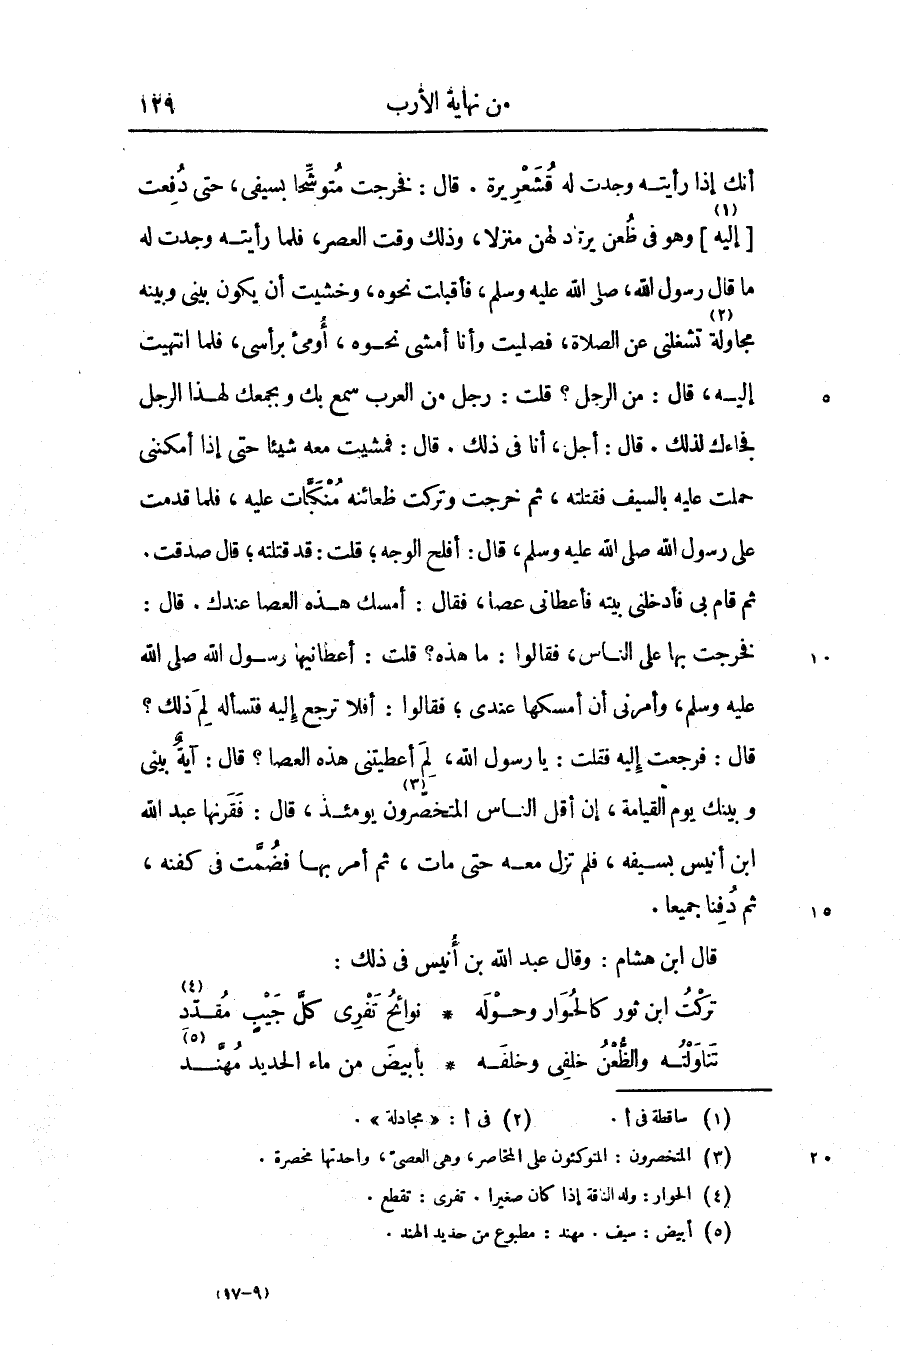 من نهاية الأرب ١٢٩
أنك إذا رأيتـه وجدت له قُشَعْرِيرة . قال : فخرجت مُتوشِّحا بسيفى، حتى دُفِعت
[ إليه ](١) وهو فى ظُعن يرتاد لهن منزلا، وذلك وقت العصر، فلما رأيتـه وجدت له
ما قال رسول الله، صلى الله عليه وسلم، فأقبلت نحوه، وخشيت أن يكون بينى وبينه
مجاولة(٢) تشغلنى عن الصلاة، فصليت وأنا أمشى نحـوه، أُومئ برأسى، فلما انتهيت
إليـه، قال : من الرجل؟ قلت : رجل من العرب سمع بك وبجمعك لهـذا الرجل
٥
فجاءك لذلك . قال : أجل، أنا فى ذلك . قال : فمشيت معه شيئا حتى إذا أمكننى
حملت عليه بالسيف فقتلته، ثم خرجت وتركت ظعائنه مُنْكَبَّات عليه، فلما قدمت
على رسول الله صلى الله عليه وسلم، قال : أفلح الوجه؛ قلت : قد قتلته؛ قال صدقت.
ثم قام بى فأدخلنى بيته فأعطانى عصا، فقال : أمسك هـذه العصا عندك . قال :
فخرجت بها على النـاس، فقالوا : ما هذه؟ قلت : أعطانيها رسـول الله صلى الله
١٠
عليه وسلم، وأمرنى أن أمسكها عندى؛ فقالوا : أفلا ترجع إليه فتسأله لِمَ ذلك؟
قال : فرجعت إليه فقلت : يا رسول الله، لِمَ أعطيتنى هذه العصا؟ قال : آيةٌ بينى
وبينك يوم القيامة، إن أقل النـاس المتخصّرون(٣) يومئـذ، قال : فَقَرنها عبد الله
ابن أنيس بسـيفه، فلم تزل معـه حتى مات، ثم أمر بهـا فضُمَّت فى كفنه،
ثم دُفِنا جميعا .
١٥
قال ابن هشام : وقال عبد الله بن أُنيس فى ذلك :
تركْتُ ابن ثور كالحُوَار وحـوْلَه * نوائحُ تَفْرِى كلَّ جَيْبٍ مُقـدّد(٤)
تَنَاوَلْتُـه والظُّعْنُ خلفِى وخلفَـه * بأبيضَ من ماء الحديد مُهنَّـد(٥)
(١) ساقطة فى أ . (٢) فى أ : « مجادلة » .
(٣) المتخصرون : المتوكئون على المخاصر، وهى العصىّ، واحدتها مخصرة .
٢٠
(٤) الحوار : ولد الناقة إذا كان صغيرا . تفرى : تقطع .
(٥) أبيض : سيف . مهند : مطبوع من حديد الهند .
(٩-١٧)